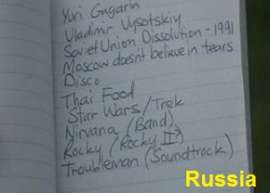 Yuri Gagarin
Vladimir Vysotskiy
Soviet Union Dissolution - 1991
Moscow doesn't believe in tears
Disco
Thai Food
Star Wars / Trek
Nirvana (Band)
Rocky (Rocky II?)
Troubleman (Soundtrack)
Russia